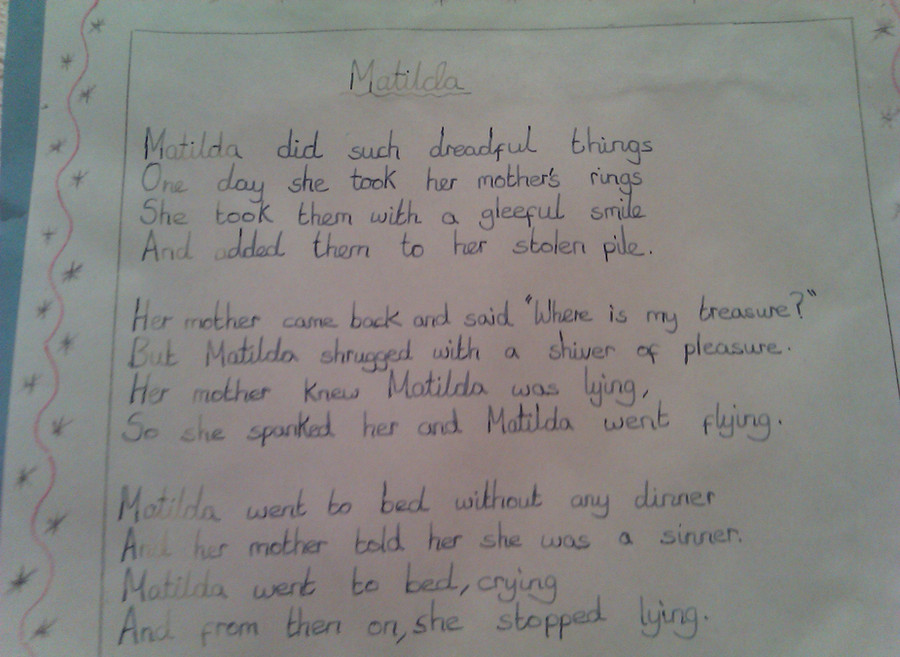 Matilda
Matilda did such dreadful things
One day she took her mother's rings
She took them with a gleeful smile
And added them to her stolen pile.
Her mother came back and said "Where is my treasure?"
But Matilda shrugged with a shiver of pleasure.
Her mother knew Matilda was lying,
So she spanked her and Matilda went flying.
Matilda went to bed without any dinner
And her mother told her she was a sinner.
Matilda went to bed, crying
And from then on, she stopped lying.